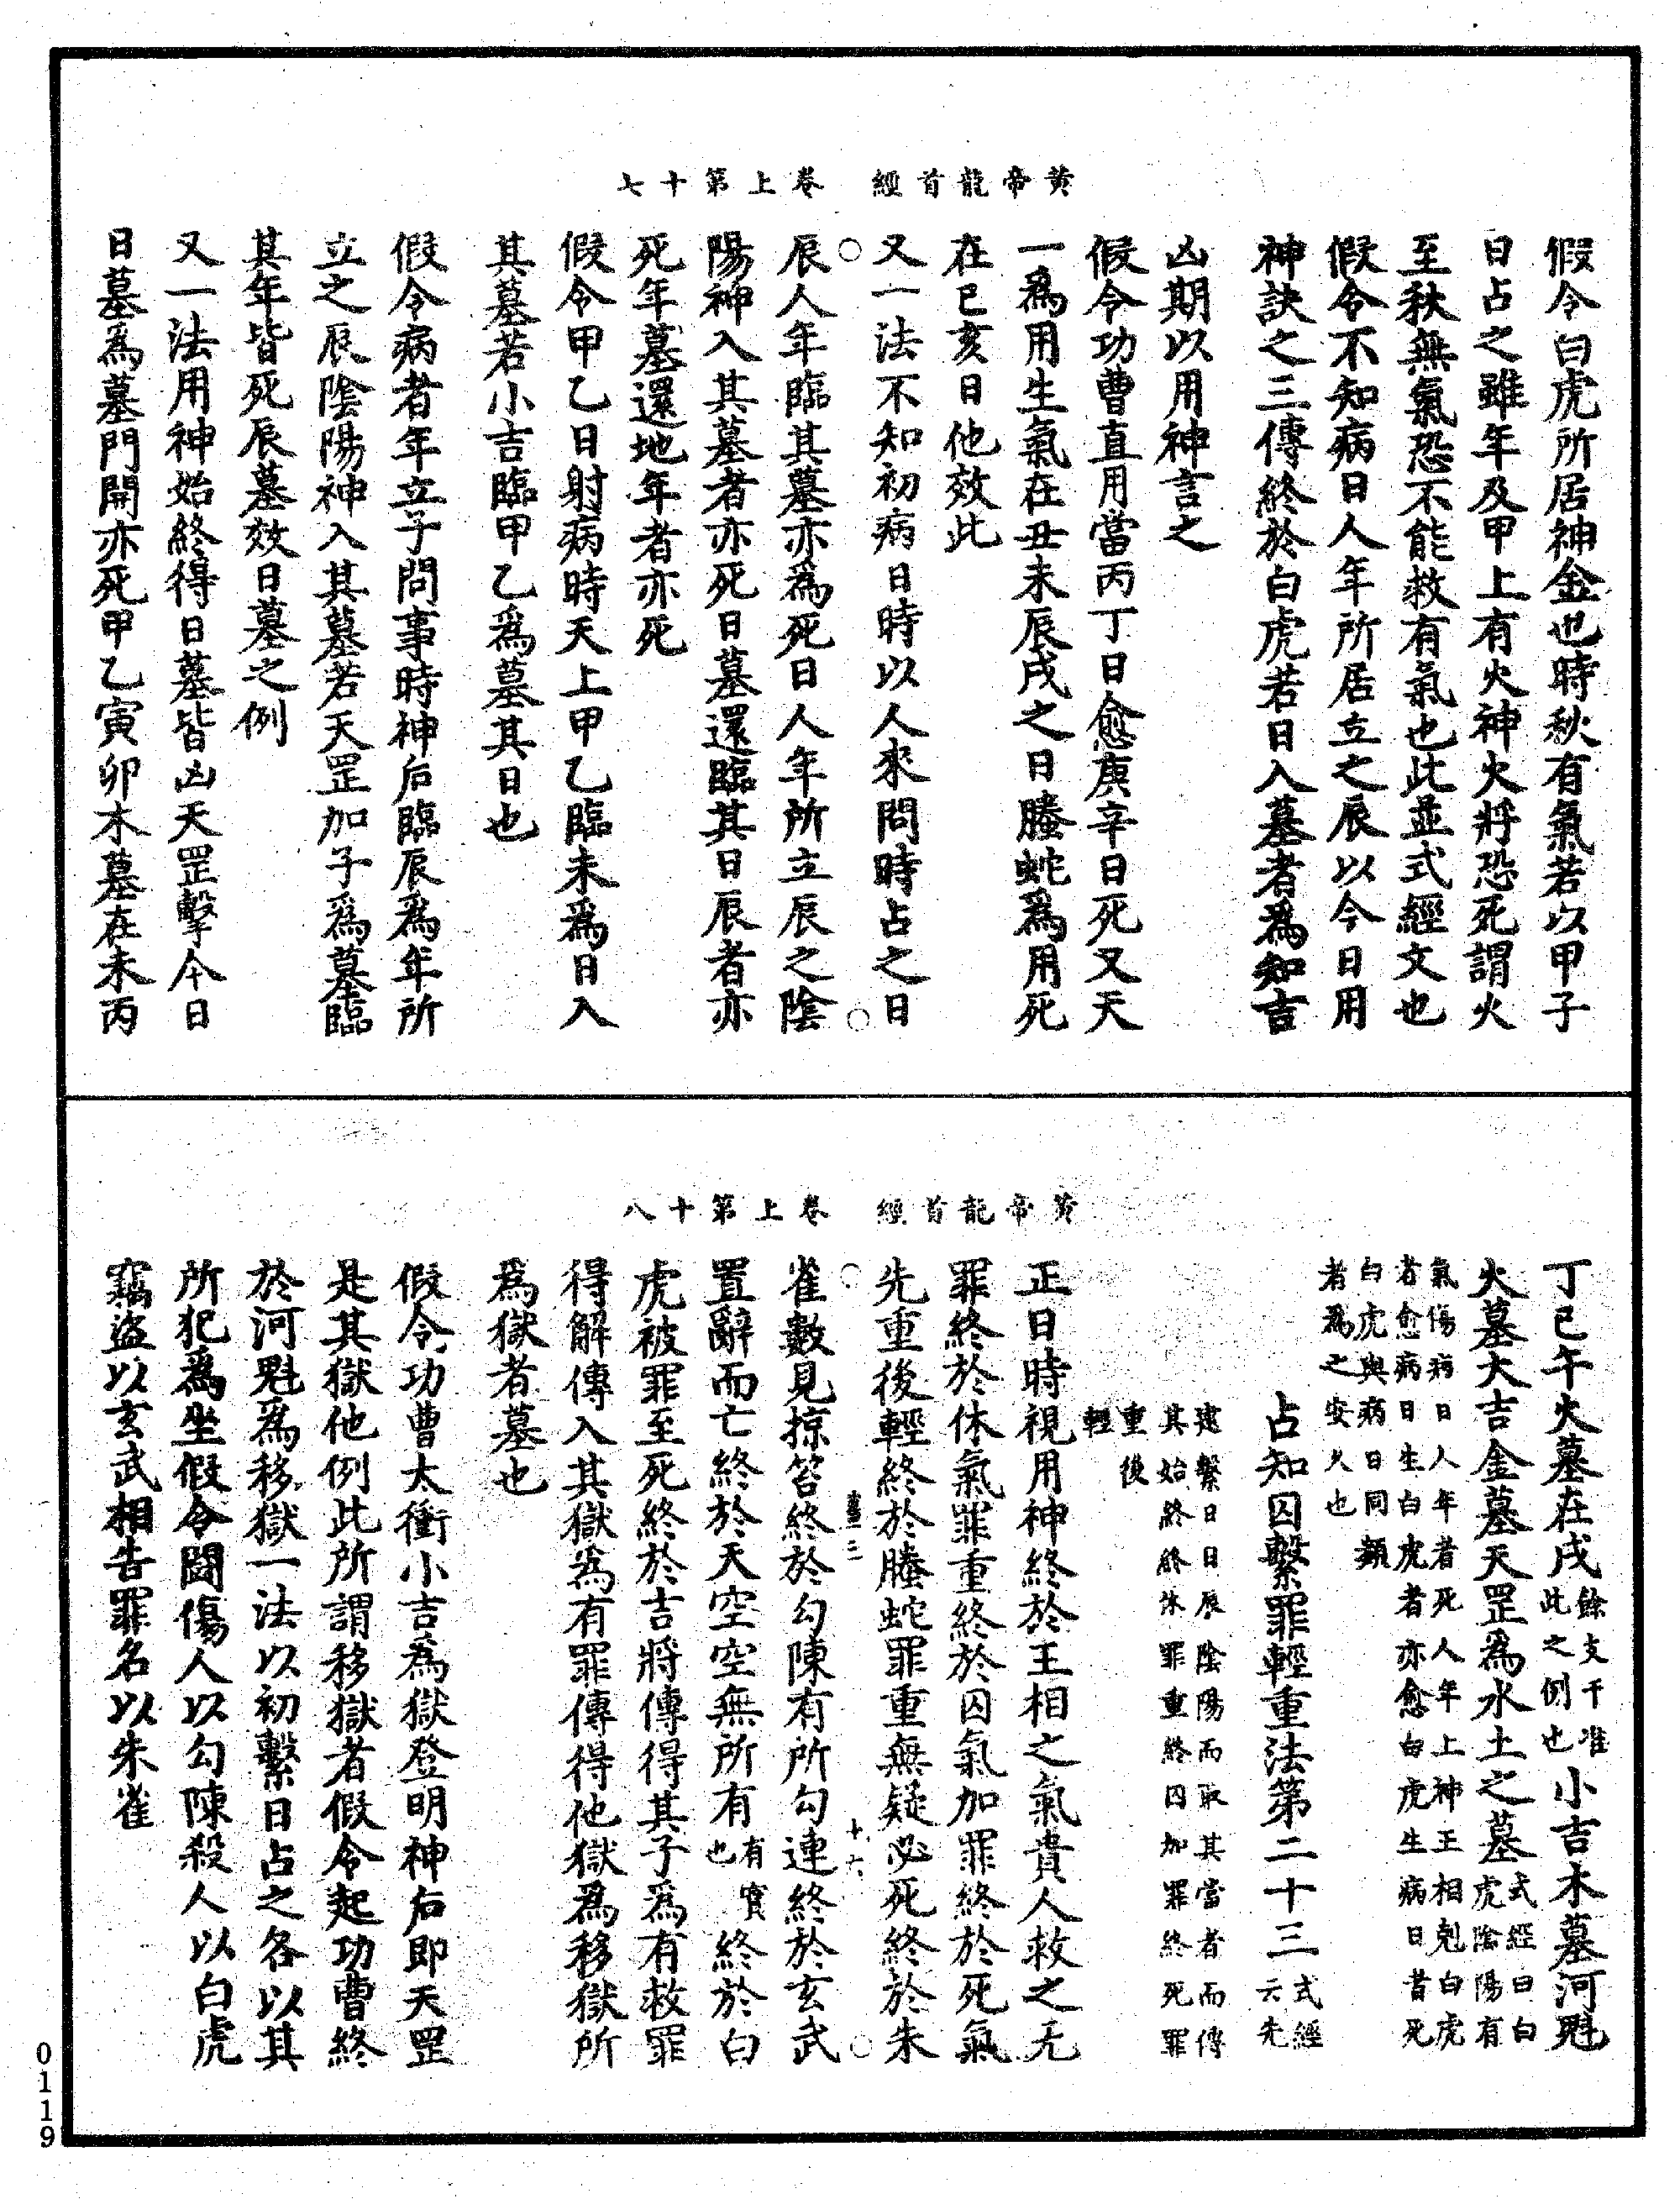 黃帝龍首經　卷上第十七
假令白虎所居神金也時秋有氣若以甲子
日占之雖年及甲上有火神火將恐死謂火
至秋無氣恐不能救有氣也此並式經文也
假令不知病日人年所居立之辰以今日用
神訣之三傳終於白虎若日入墓者爲知吉
凶期以用神言之
假令功曹直用當丙丁日愈庚辛日死又天
一爲用生氣在丑未辰戌之日螣蛇爲用死
在巳亥日他效此
又一法不知初病日時以人來問時占之日
辰人年臨其墓亦爲死日人年所立辰之陰
陽神入其墓者亦死日墓還臨其日辰者亦
死年墓還地年者亦死
假令甲乙日射病時天上甲乙臨未爲日入
其墓若小吉臨甲乙爲墓其日也
假令病者年立子問事時神后臨辰爲年所
立之辰陰陽神入其墓若天罡加子爲墓臨
其年皆死辰墓效日墓之例
又一法用神始終得日墓皆凶天罡擊今日
日墓爲墓門開亦死甲乙寅卯木墓在未丙
黃帝龍首經　卷上第十八
丁巳午火墓在戌餘支干准此之例也小吉木墓河魁
火墓大吉金墓天罡爲水土之墓式經曰白虎陰陽有
氣傷病日人年者死人年上神王相剋白虎
者愈病日生白虎者亦愈白虎生病日昔死
白虎與病日同類
者爲之安久也
占知囚繫罪輕重法第二十三式經云先
建繫日日辰陰陽而取其當者而傳
其始終終休罪重終囚加罪終死罪
重後
輕
正日時視用神終於王相之氣貴人救之无
罪終於休氣罪重終於囚氣加罪終於死氣
先重後輕終於螣蛇罪重無疑必死終於朱
雀數見掠笞終於勾陳有所勾連終於玄武
置辭而亡終於天空空無所有有實也終於白
虎被罪至死終於吉將傳得其子爲有救罪
得解傳入其獄爲有罪傳得他獄爲移獄所
爲獄者墓也
假令功曹太衝小吉爲獄登明神后即天罡
是其獄他例此所謂移獄者假令起功曹終
於河魁爲移獄一法以初繫日占之各以其
所犯爲坐假令鬪傷人以勾陳殺人以白虎
竊盜以玄武相告罪名以朱雀
十六
0119